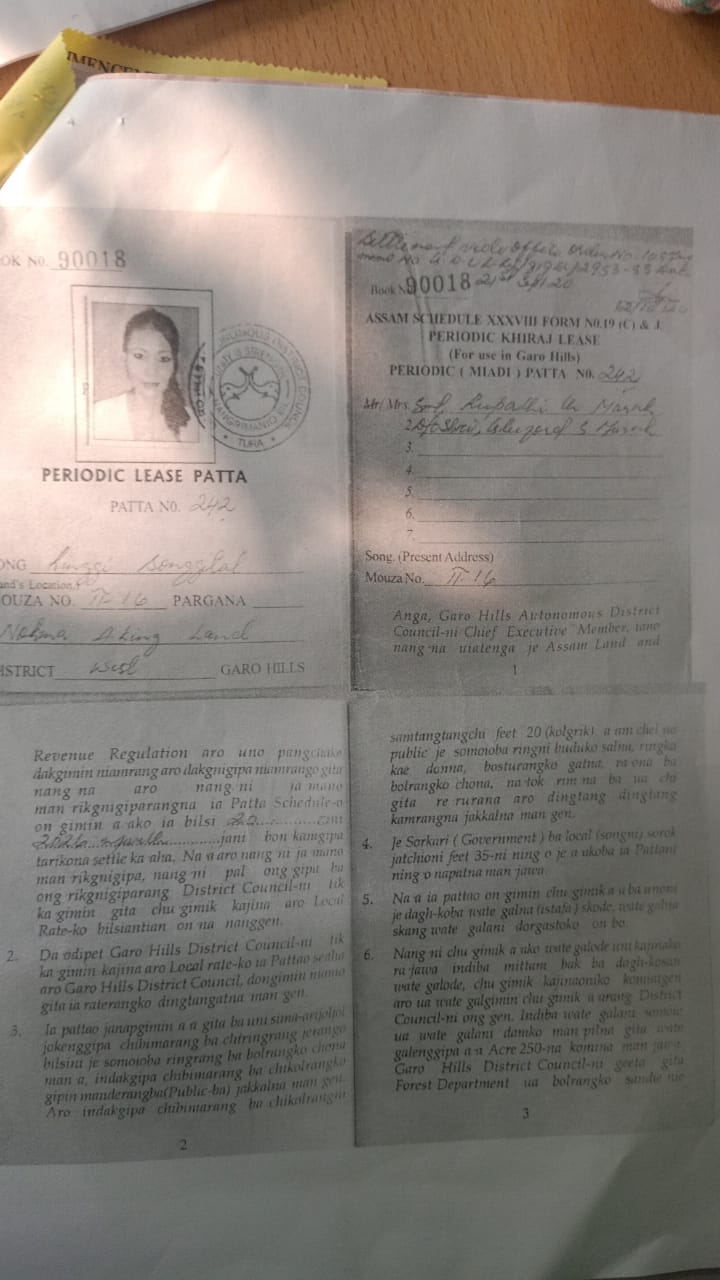 IMENCEM
OK No. 90018
AUTONOMOUS DISTRICT COUNCIL
UNITY IS STRENGTH
TURA
PERIODIC LEASE PATTA
PATTA NO. 242
ONG Songgital
and's Location)
OUZA NO. II-16 PARGANA
Nokma Aking Land
ISTRICT West GARO HILLS
Settlement vide Office Order No.
memo No
Book No 90018 21st Sept 20
ASSAM SCHEDULE XXXVIII FORM N0.19 (C) & J.
PERIODIC KHIRAJ LEASE
(For use in Garo Hills)
PERIODIC ( MIADI ) PATTA NO. 242
Mr/ Mrs. Smt, Marak
2. D/o Shri, S Marak
3.
4.
5.
6.
7.
Song. (Present Address)
Mouza No. II-16
Anga, Garo Hills Autonomous District
Council-ni Chief Executive Member, iano
nang·na uialenga je Assam Land and
1
Revenue Regulation aro uno pangchake
dakgimin niamrang aro dakgnigipa niamrango gita
nang·na aro nang·ni ja·mano
man·rikgnigiparangna ia Patta Schedule-o
on·gimin a·ako ia bilsi 20
jani bon·kamgipa
tarikona settle ka·aha. Na·a aro nang·ni ja·mano
man·rikgnigipa, nang·ni pal ong·gipa ba
ong·rikgnigiparang District Council-ni tik
ka·gimin gita chu·gimik kajina aro Local
Rate-ko bilsiantian on·na nanggen.
2. Da·odipet Garo Hills District Council-ni tik
ka·gimin kajina aro Local rate-ko ia Pattao sealia
aro Garo Hills District Council, dongimin niamo
gita ia raterangko dingtangatna man·gen.
3. Ia pattao janapgimin a·a gita ba uni sima-arijoljol
jokenggipa chibimarang ba chiringrang jerango
bilsini je somoioba ringrang ba bolrangko chona
man·a, indakgipa chibimarang ba chikolrangko
gipin manderangba(Public-ba) jakkalna man·gen.
Aro indakgipa chibimarang ba chikolrangni
2
samtangtangchi feet 20 (kolgrik) a·am chei·no
public je somoioba ringni buduko salna, ringko
kae donna, bosturangko galna, ra·ona ba
bolrangko chona, na·tok rim·na ba ua chi
gita re·rurana aro dingtang dingtang
kamrangna jakkalna man·gen.
4. Je Sorkari ( Government ) ba local (songni) sorok
jatchioni feet 35-ni ning·o je a·ukoba ia Pattani
ning·o napatna man·jawa.
5. Na·a ia pattao on·gimin chu·gimik a·a ba unoni
je dagh-koba wate galna (istafa) skode, wate galna
skang wate galani dorgastoko on·bo.
6. Nang·ni chu·gimik a·ako wate galode uni kajinako
ra·jawa indiba mittam bak ba dagh-kosan
wate galode, chu·gimik kajinaoniko komiatgen
aro ua wate galgimin chu·gimik a·arang District
Council-ni ong·gen. Indiba wate galani somoio
ua wate galani damko man·pilna gita wate
galenggipa a·a Acre 250-na komina man·jawa.
Garo Hills District Council-ni geeta gita
Forest Department ua bolrangko sandie nie
3